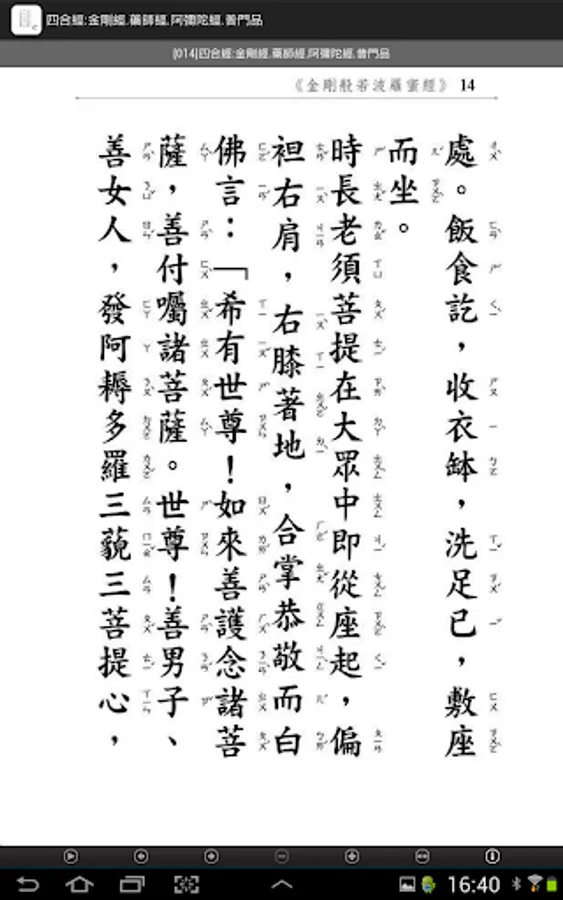 四合經:金剛經.藥師經.阿彌陀經.普門品
[014]四合經:金剛經.藥師經.阿彌陀經.普門品
《金剛般若波羅蜜經》 14
處。飯食訖，收衣缽，洗足已，敷座
而坐。
時長老須菩提在大眾中即從座起，偏
袒右肩，右膝著地，合掌恭敬而白
佛言：「希有世尊！如來善護念諸菩
薩，善付囑諸菩薩。世尊！善男子、
善女人，發阿耨多羅三藐三菩提心，
16:40